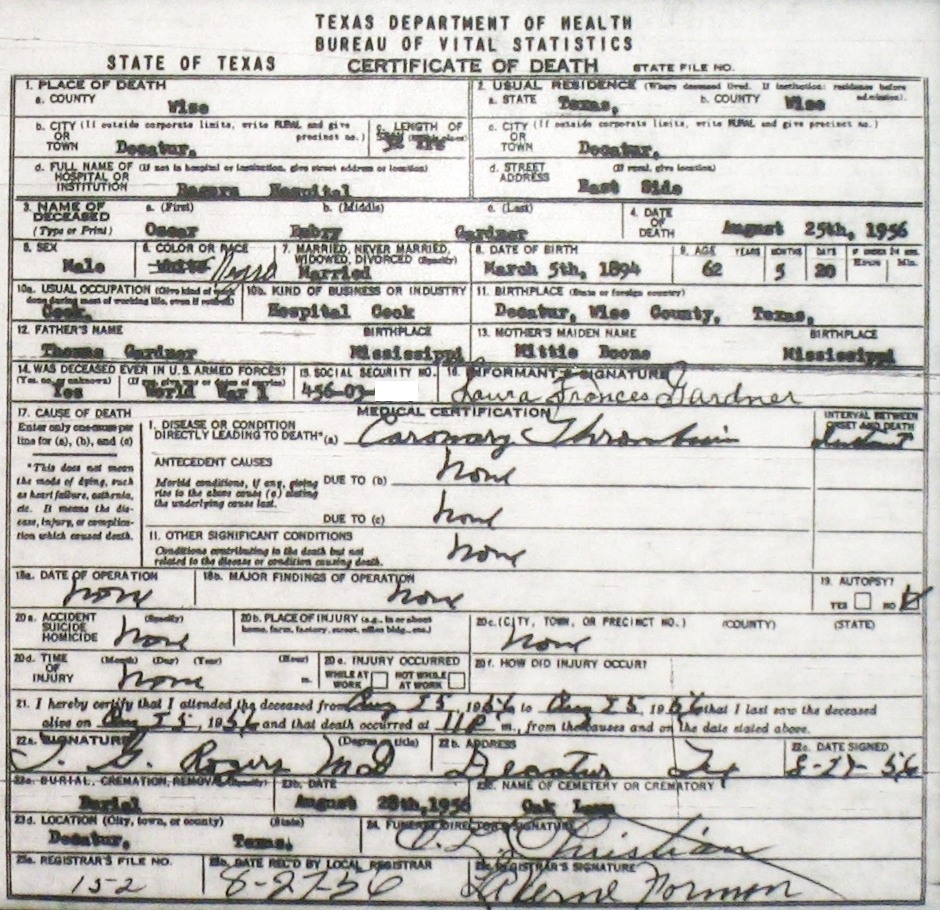 TEXAS DEPARTMENT OF HEALTH
BUREAU OF VITAL STATISTICS
STATE OF TEXAS CERTIFICATE OF DEATH STATE FILE NO.
1. PLACE OF DEATH
a. COUNTY Wise
2. USUAL RESIDENCE (Where deceased lived. If institution: residence before admission).
a. STATE Texas, b. COUNTY Wise
b. CITY (If outside corporate limits, write RURAL and give precinct no.)
OR
TOWN Decatur,
c. LENGTH OF
Yrs
c. CITY (If outside corporate limits, write RURAL and give precinct no.)
OR
TOWN Decatur,
d. FULL NAME OF (If not in hospital or institution, give street address or location)
HOSPITAL OR
INSTITUTION Hospital
d. STREET (If rural, give location)
ADDRESS East Side
3. NAME OF DECEASED (Type or Print)
a. (First) b. (Middle) c. (Last)
Oscar Gardner
4. DATE OF DEATH August 25th, 1956
5. SEX
Male
6. COLOR OR RACE
White Negro
7. MARRIED, NEVER MARRIED, WIDOWED, DIVORCED (Specify)
Married
8. DATE OF BIRTH
March 5th, 1894
9. AGE YEARS MONTHS DAYS IF UNDER 24 HRS. Hours Min.
62 5 20
10a. USUAL OCCUPATION (Give kind of work done during most of working life, even if retired)
Cook.
10b. KIND OF BUSINESS OR INDUSTRY
Hospital Cook
11. BIRTHPLACE (State or foreign country)
Decatur, Wise County, Texas,
12. FATHER'S NAME BIRTHPLACE
Thomas Gardner Mississippi
13. MOTHER'S MAIDEN NAME BIRTHPLACE
Mittie Boone Mississippi
14. WAS DECEASED EVER IN U.S. ARMED FORCES?
(Yes, no, or unknown) (If yes, give war or dates of service)
Yes World War I
15. SOCIAL SECURITY NO.
456-03-
16. INFORMANT'S SIGNATURE
Laura Frances Gardner
MEDICAL CERTIFICATION
17. CAUSE OF DEATH
Enter only one cause per
line for (a), (b), and (c)
*This does not mean
the mode of dying, such
as heart failure, asthenia,
etc. It means the dis-
ease, injury, or complica-
tion which caused death.
I. DISEASE OR CONDITION
DIRECTLY LEADING TO DEATH* (a) Coronary
INTERVAL BETWEEN
ONSET AND DEATH
Instant
ANTECEDENT CAUSES
Morbid conditions, if any, giving
rise to the above cause (a) stating
the underlying cause last.
DUE TO (b) None
DUE TO (c) None
II. OTHER SIGNIFICANT CONDITIONS
Conditions contributing to the death but not
related to the disease or condition causing death.
None
18a. DATE OF OPERATION
None
18b. MAJOR FINDINGS OF OPERATION
None
19. AUTOPSY?
YES NO
20a. ACCIDENT (Specify)
SUICIDE
HOMICIDE None
20b. PLACE OF INJURY (e.g., in or about
home, farm, factory, street, office bldg., etc.)
20c. (CITY, TOWN, OR PRECINCT NO.) (COUNTY) (STATE)
None
20d. TIME (Month) (Day) (Year) (Hour)
OF
INJURY None m.
20e. INJURY OCCURRED
WHILE AT WORK NOT WHILE AT WORK
20f. HOW DID INJURY OCCUR?
21. I hereby certify that I attended the deceased from Aug 25, 1956 to Aug 25, 1956 that I last saw the deceased
alive on Aug 25, 1956 and that death occurred at 11P m., from the causes and on the date stated above.
22a. SIGNATURE (Degree or title)
Rogers MD
22b. ADDRESS
Decatur Tex
22c. DATE SIGNED
8-27-56
23a. BURIAL, CREMATION, REMOVAL (Specify)
Burial
23b. DATE
August 28th, 1956
23c. NAME OF CEMETERY OR CREMATORY
Oak Lawn
23d. LOCATION (City, town, or county) (State)
Decatur, Texas.
24. FUNERAL DIRECTOR'S SIGNATURE
Christian
25a. REGISTRAR'S FILE NO.
152
25b. DATE REC'D BY LOCAL REGISTRAR
8-27-56
25c. REGISTRAR'S SIGNATURE
LaVerne Forman